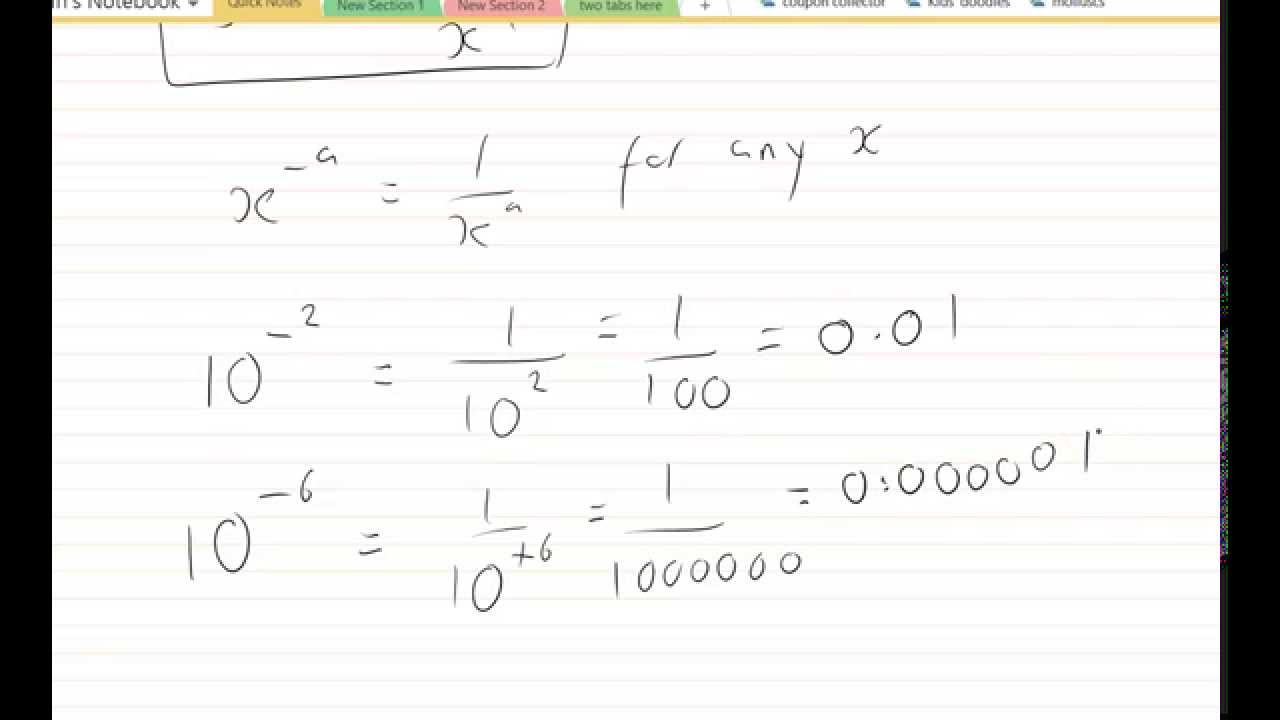 n's Notebook Quick Notes New Section 1 New Section 2 two tabs here + coupon collector Kids' doodles molluscs
x
x⁻ᵃ = 1/xᵃ for any x
10⁻² = 1/10² = 1/100 = 0.01
10⁻⁶ = 1/10⁺⁶ = 1/1000000 = 0.000001